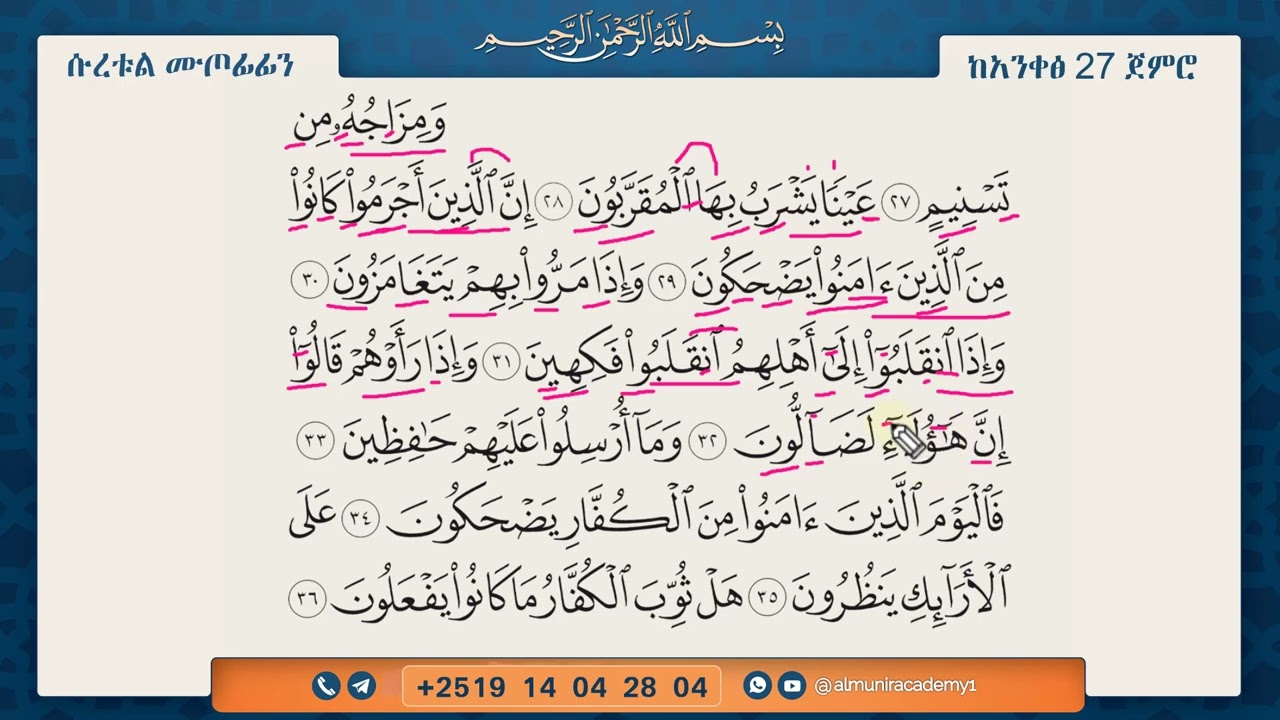 بِسْمِ ٱللَّهِ ٱلرَّحْمَٰنِ ٱلرَّحِيمِ
ሱረቱል ሙጦፊፊን
ከአንቀፅ 27 ጀምሮ
وَمِزَاجُهُۥ مِن
تَسْنِيمٍ ٢٧ عَيْنًا يَشْرَبُ بِهَا ٱلْمُقَرَّبُونَ ٢٨ إِنَّ ٱلَّذِينَ أَجْرَمُوا۟ كَانُوا۟
مِنَ ٱلَّذِينَ ءَامَنُوا۟ يَضْحَكُونَ ٢٩ وَإِذَا مَرُّوا۟ بِهِمْ يَتَغَامَزُونَ ٣٠
وَإِذَا ٱنقَلَبُوٓا۟ إِلَىٰٓ أَهْلِهِمُ ٱنقَلَبُوا۟ فَكِهِينَ ٣١ وَإِذَا رَأَوْهُمْ قَالُوٓا۟
إِنَّ هَٰٓؤُلَآءِ لَضَآلُّونَ ٣٢ وَمَآ أُرْسِلُوا۟ عَلَيْهِمْ حَٰفِظِينَ ٣٣
فَٱلْيَوْمَ ٱلَّذِينَ ءَامَنُوا۟ مِنَ ٱلْكُفَّارِ يَضْحَكُونَ ٣٤ عَلَى
ٱلْأَرَآئِكِ يَنظُرُونَ ٣٥ هَلْ ثُوِّبَ ٱلْكُفَّارُ مَا كَانُوا۟ يَفْعَلُونَ ٣٦
+2519 14 04 28 04
@almuniracademy1